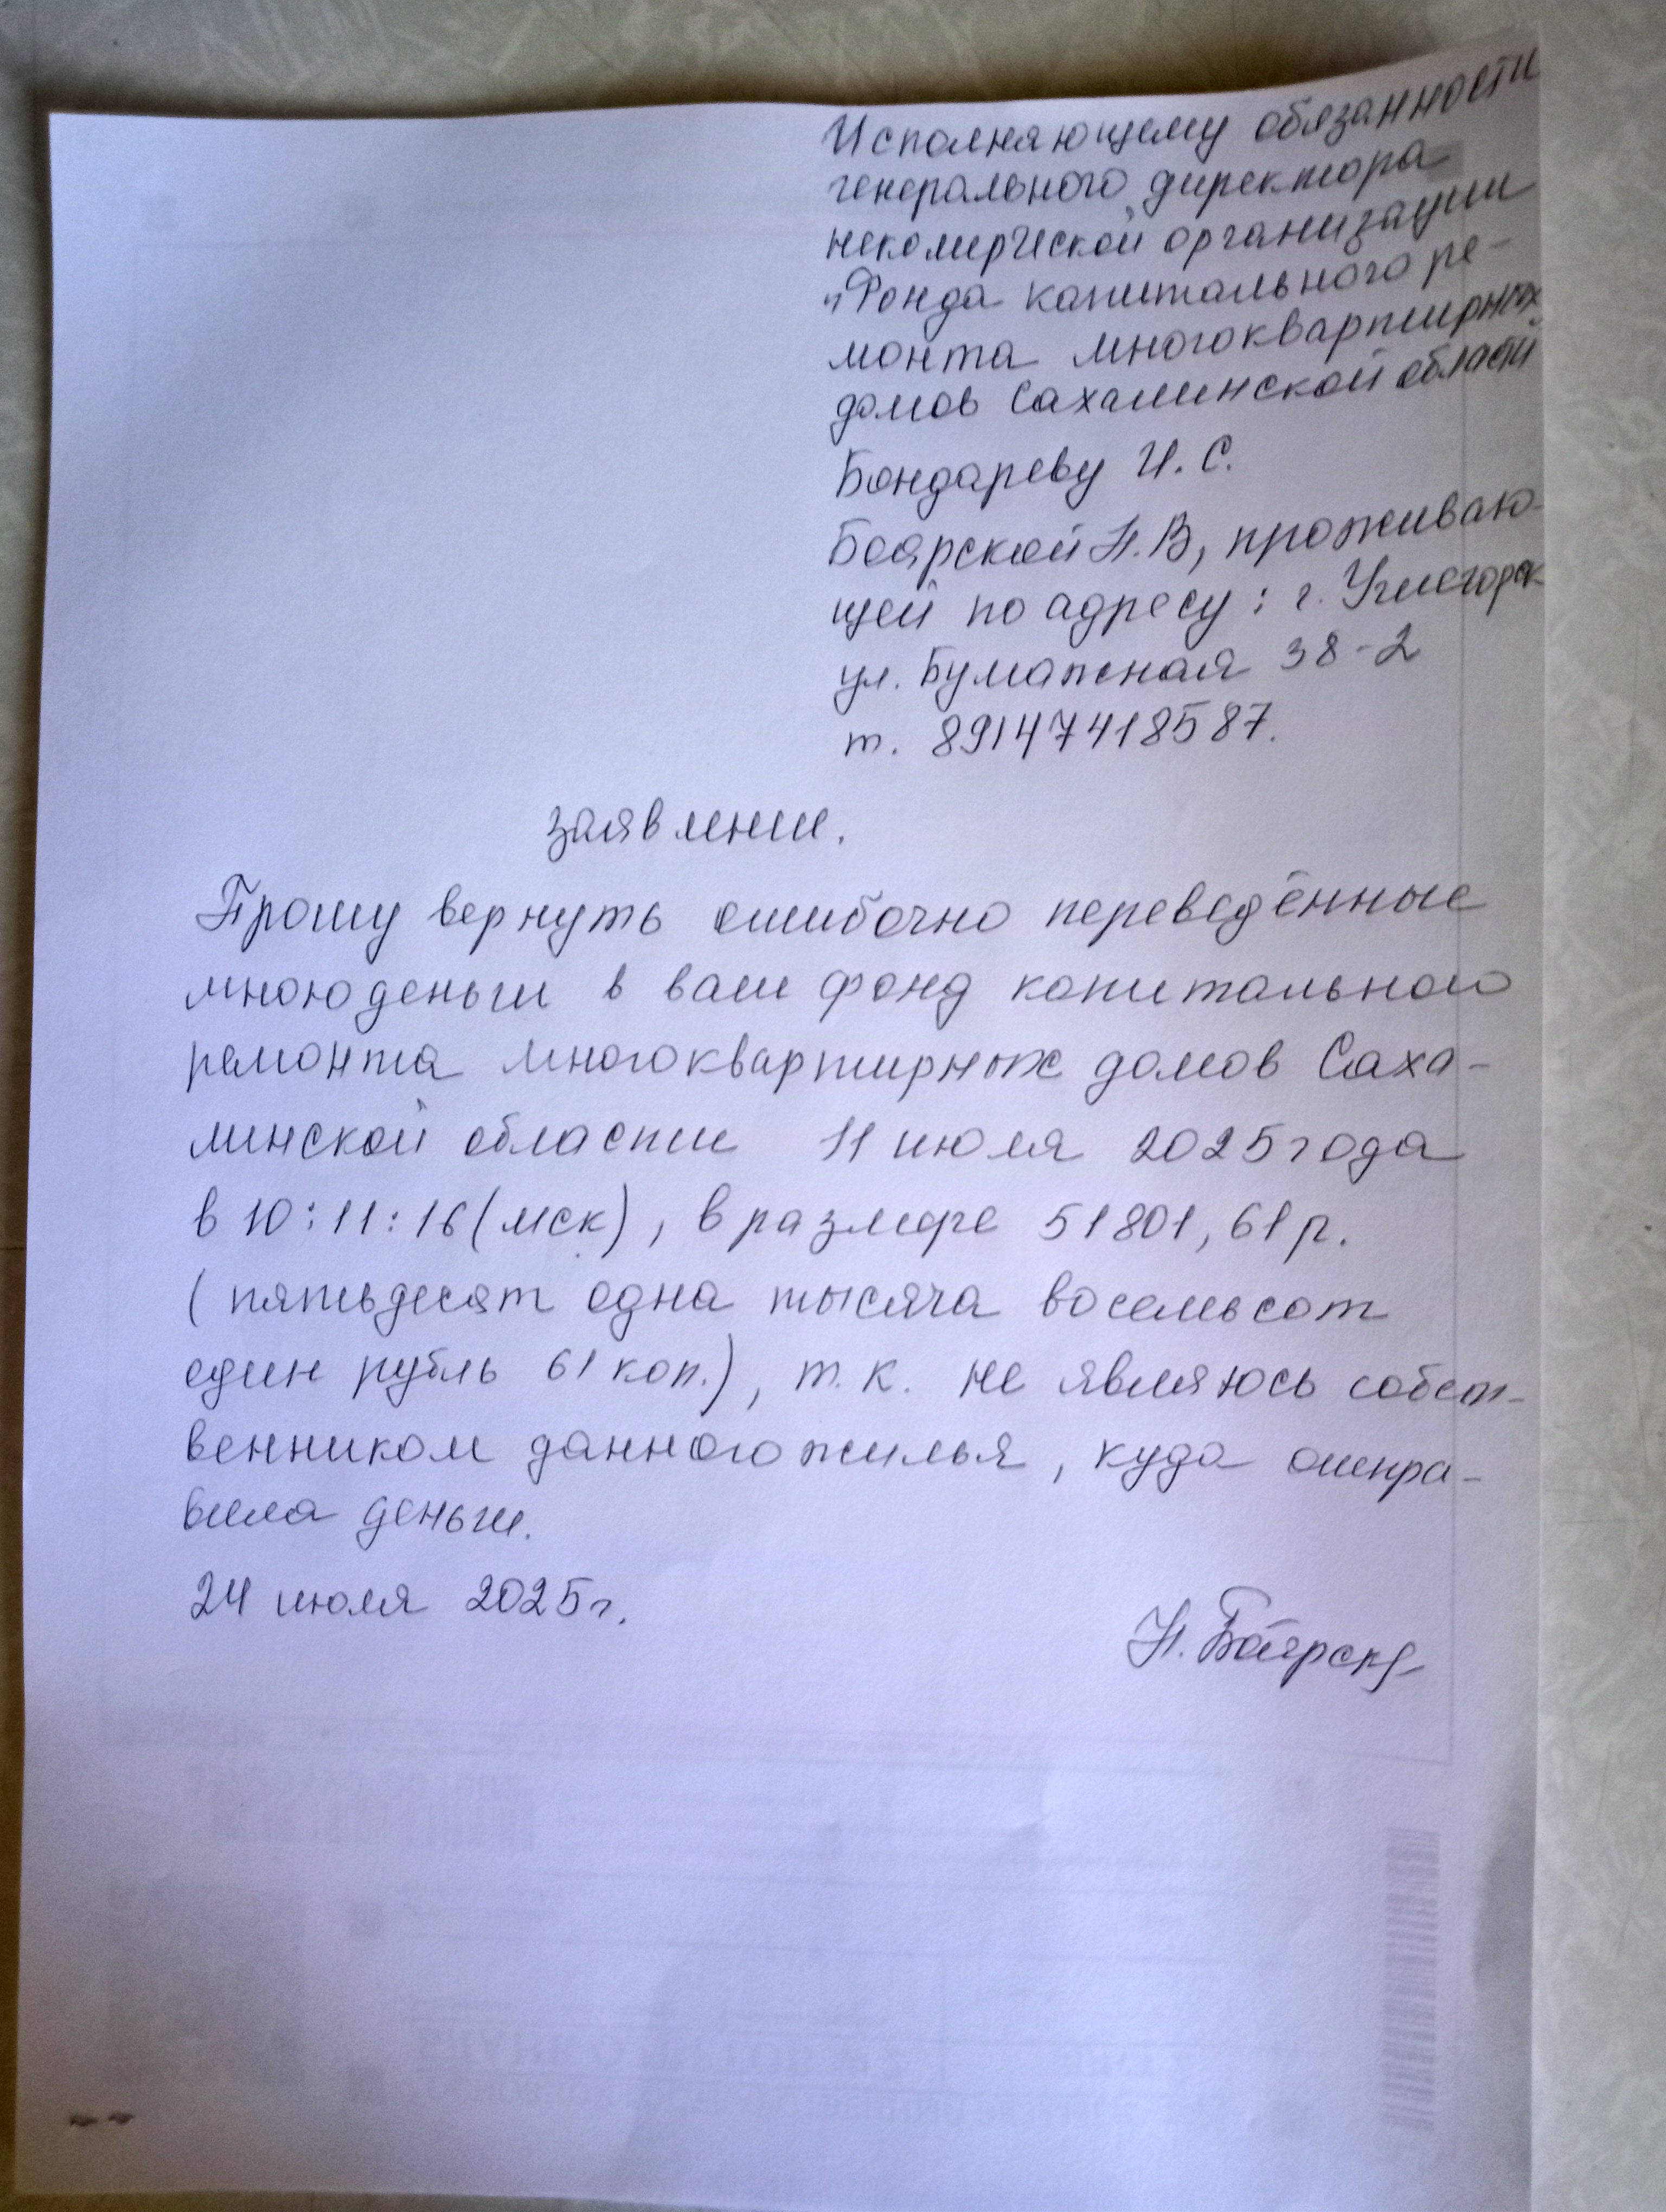 Исполняющему обязанности
генерального директора
некомирческой организации
"Фонда капитального ре-
монта многоквартирных
домов Сахалинской области
Бондареву И. С.
Боярской Н.В, проживаю-
щей по адресу: г. Углегорск
ул. Бумажная 38-2
т. 89147418587.
заявление.
Прошу вернуть ошибочно переведённые
мною деньги в ваш фонд капитального
ремонта многоквартирных домов Саха-
линской области 11 июля 2025 года
в 10:11:16 (мск), в размере 51801,61 р.
(пятьдесят одна тысяча восемьсот
один рубль 61 коп.), т.к. не являюсь собст-
венником данного жилья, куда отпра-
вила деньги.
24 июля 2025 г.
Н. Боярск